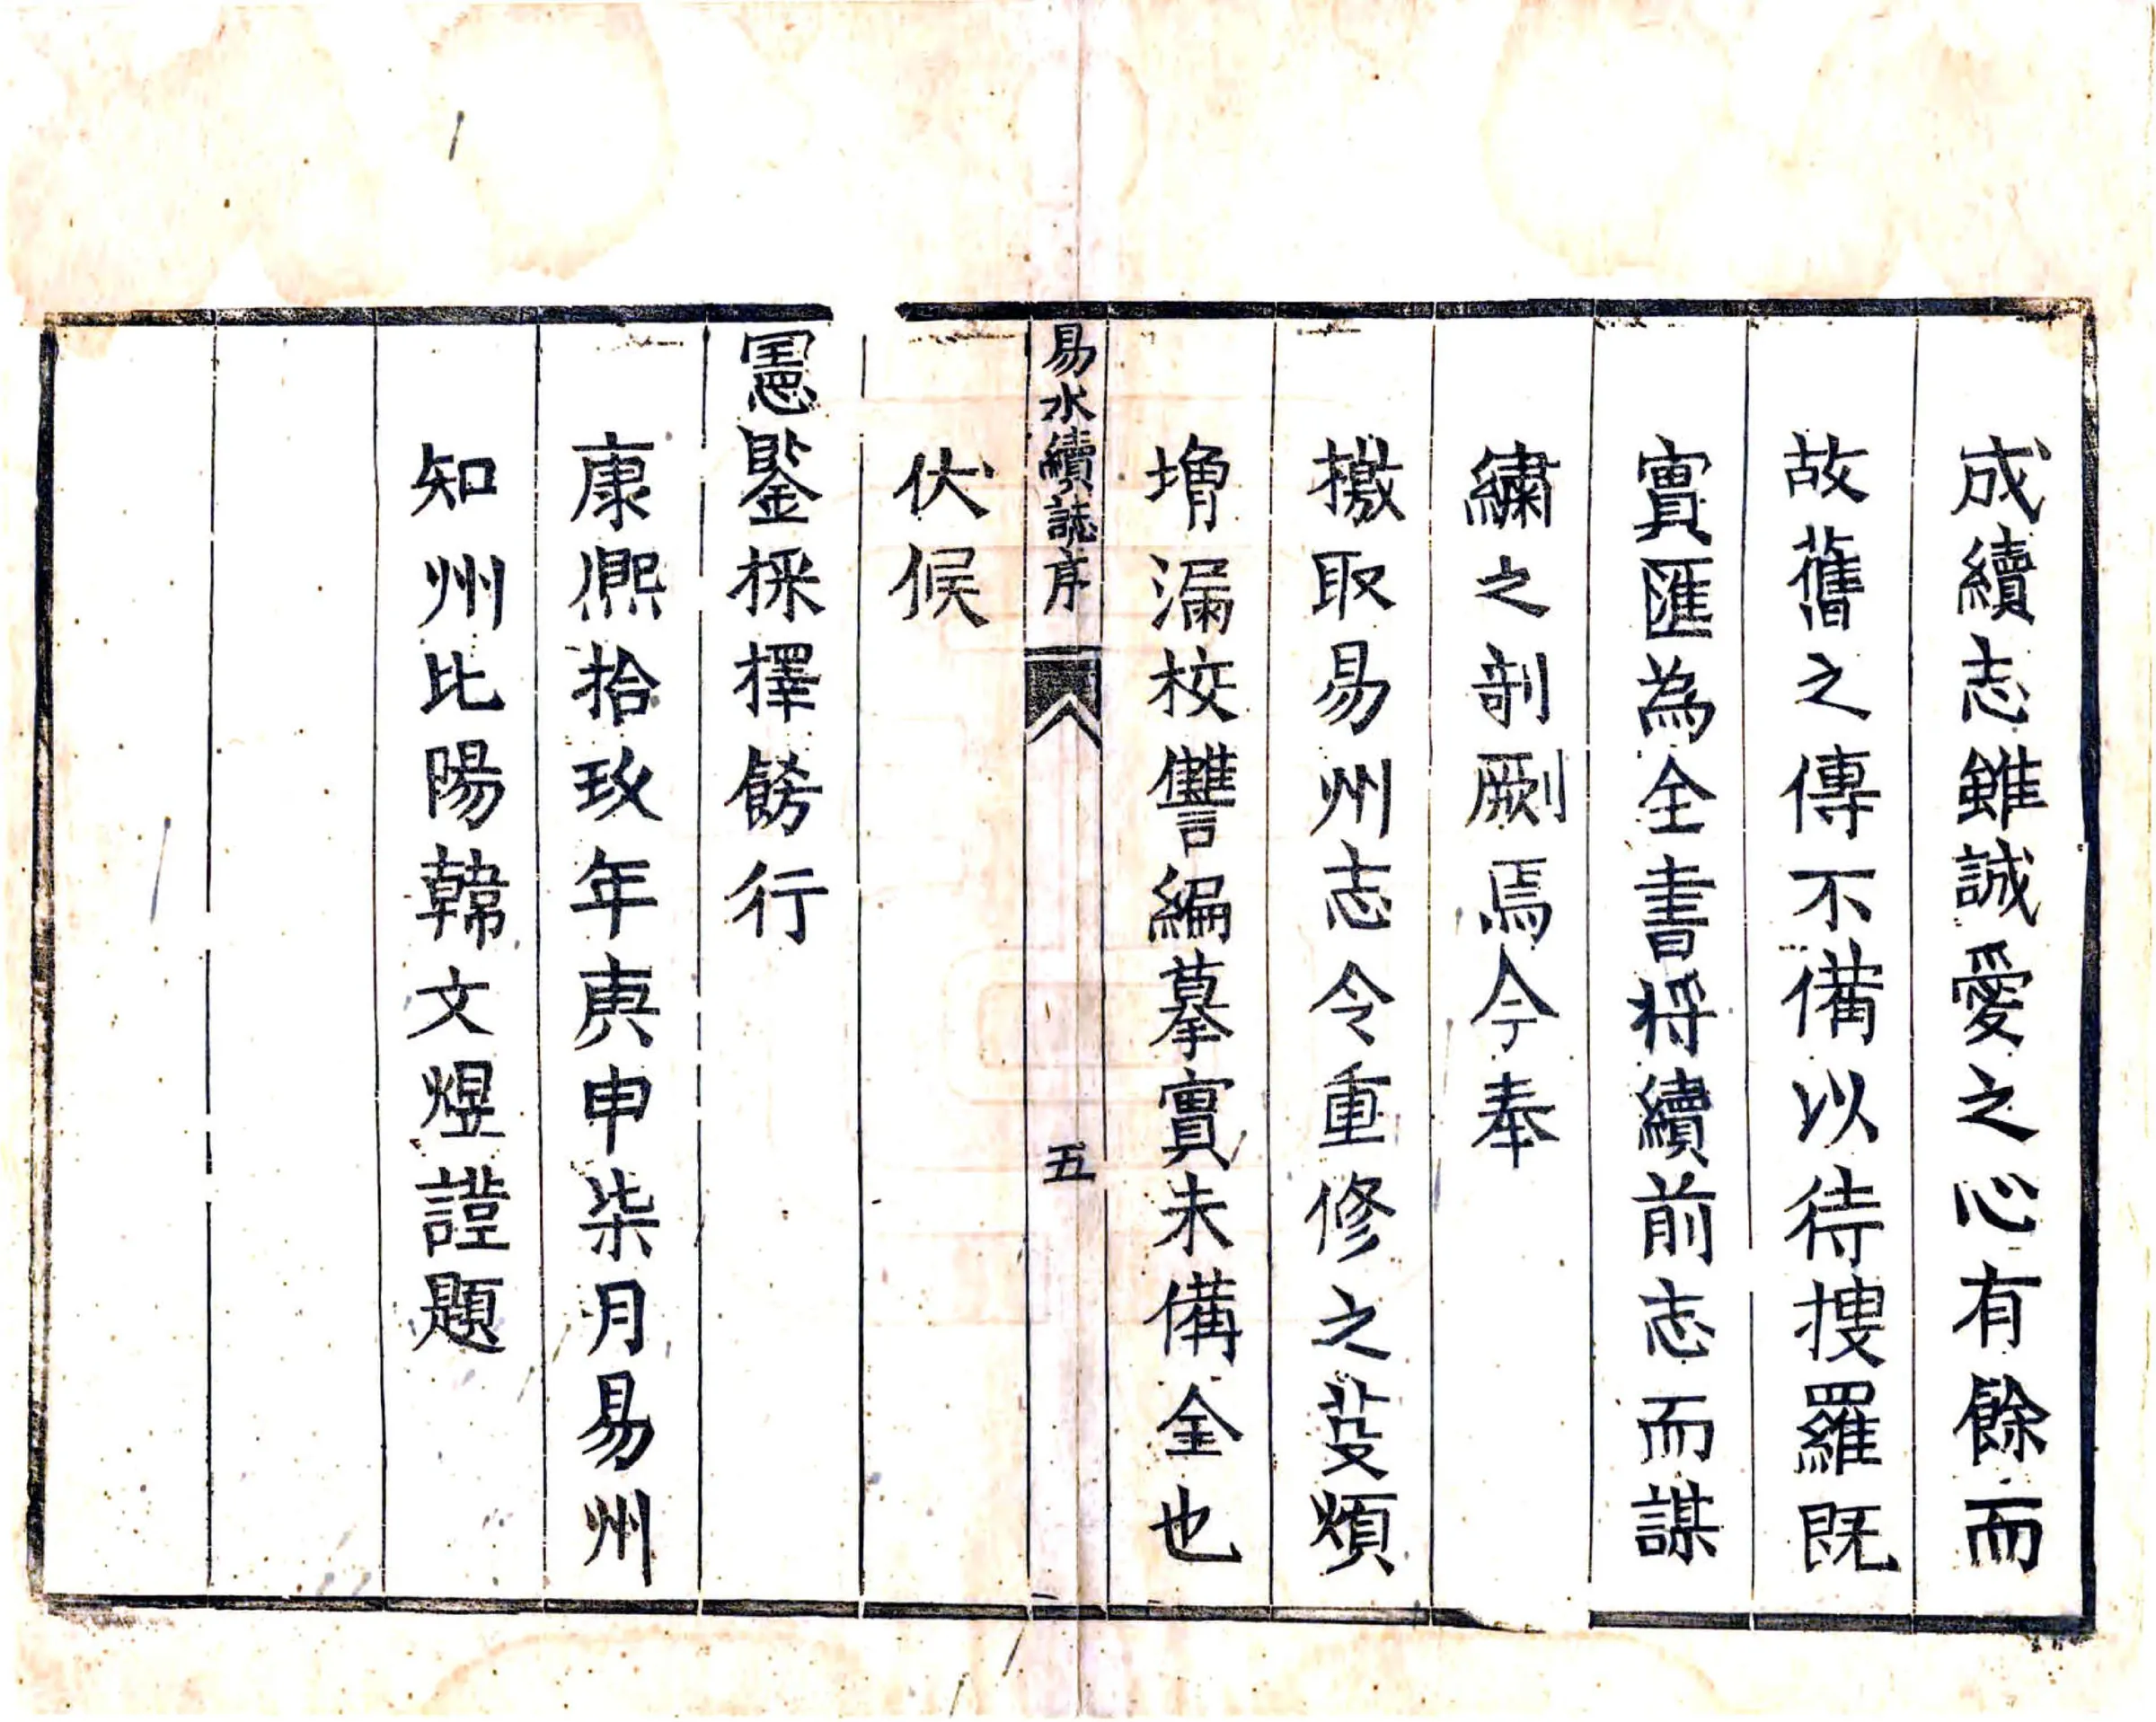 成續志雖誠愛之心有餘而
故舊之傳不備以待搜羅既
實匯為全書将續前志而謀
繡之剞劂焉今奉
檄取易州志令重修之芟煩
增漏校讐編摹實未備全也
易水續誌序 五
伏候
憲鑒採擇餝行
康熈拾玖年庚申柒月易州
知州比陽韓文煜謹題